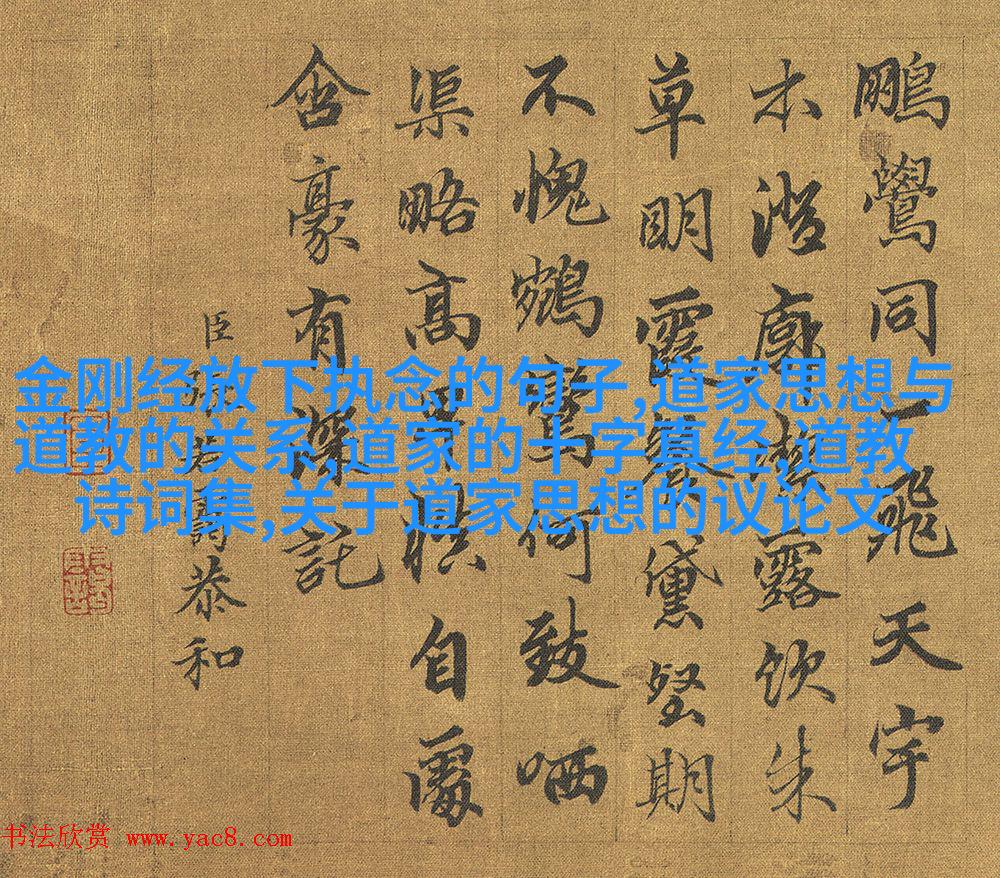 鵬鷽同一飛天宇
本澄廓潔露飲朱
草明霞餐黛堅期
不愧鵷鸞何致哂
渠略高自屬
含豪有深託
臣壽恭和
金刚经放下执念的句子,道家思想与
道教的关系,道家的十字真经,道教
诗词集,关于道家思想的议论文
书法欣赏 www.yac8.com